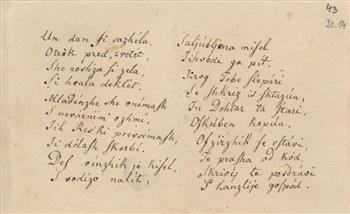 43
20.14
Un dan si vazhela,
Otrók pred, zvetet,
She roshza si zela,
Si hvala deklét.
Mladenzhe she onémash
I nevárnim ozhmi,
Tih Reski prevsimash,
Ti délash skerbi.
Def vinzhik je kisel.
I vodizo nalíti,
Saljúbljena misel
Tihvóde ga pit.
Krog Tebe slepári
Se shkrez is shtazún,
In Dohtar ta stari,
Oskúben hopún.
Ofzirzhik se vstávi,
Te prasha od kód,
Skrivej te posdrávi
S kanzlije gospód.